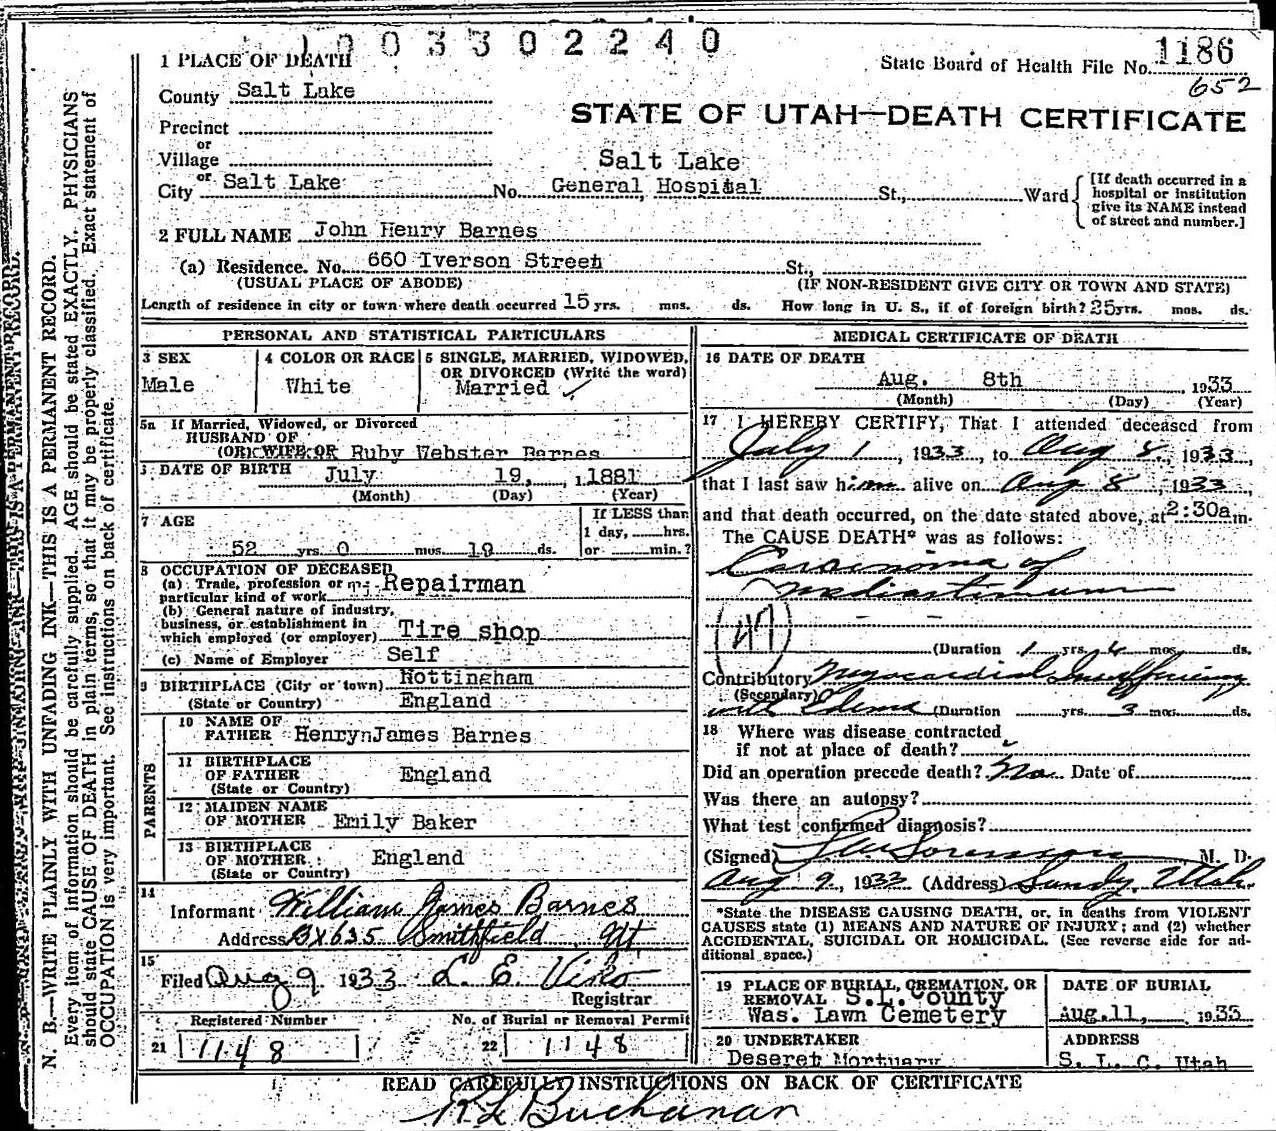 1003302240
1 PLACE OF DEATH
State Board of Health File No. 1186
652
County Salt Lake
STATE OF UTAH—DEATH CERTIFICATE
Precinct
or
Village
Salt Lake
City or Salt Lake No. General Hospital St., Ward
[If death occurred in a hospital or institution give its NAME instead of street and number.]
2 FULL NAME John Henry Barnes
(a) Residence. No. 660 Iverson Street St.,
(USUAL PLACE OF ABODE) (IF NON-RESIDENT GIVE CITY OR TOWN AND STATE)
Length of residence in city or town where death occurred 15 yrs. mos. ds. How long in U. S., if of foreign birth? 25 yrs. mos. ds.
PERSONAL AND STATISTICAL PARTICULARS
3 SEX
Male
4 COLOR OR RACE
White
5 SINGLE, MARRIED, WIDOWED, OR DIVORCED (Write the word)
Married ✓
5a If Married, Widowed, or Divorced
HUSBAND OF
(OR) WIFE OF Ruby Webster Barnes
DATE OF BIRTH July 19, 1881
(Month) (Day) (Year)
7 AGE
If LESS than
1 day, hrs.
52 yrs. 0 mos. 19 ds. or min.?
8 OCCUPATION OF DECEASED
(a) Trade, profession or
particular kind of work Repairman
(b) General nature of industry,
business, or establishment in
which employed (or employer) Tire shop
(c) Name of Employer Self
9 BIRTHPLACE (City or town) Nottingham
(State or Country) England
PARENTS
10 NAME OF
FATHER HenrynJames Barnes
11 BIRTHPLACE
OF FATHER England
(State or Country)
12 MAIDEN NAME
OF MOTHER Emily Baker
13 BIRTHPLACE
OF MOTHER England
(State or Country)
14
Informant William James Barnes
Address BX635 Smithfield, Ut
15
Filed Aug 9 1933
Registrar
Registered Number
21 1148
No. of Burial or Removal Permit
22 1148
MEDICAL CERTIFICATE OF DEATH
16 DATE OF DEATH
Aug. 8th 1933
(Month) (Day) (Year)
17 I HEREBY CERTIFY, That I attended deceased from
July 1, 1933, to Aug 8, 1933,
that I last saw him alive on Aug 8, 1933
and that death occurred, on the date stated above, at 2:30a m.
The CAUSE DEATH* was as follows:
Carcinoma of
Mediastinum
(47)
(Duration 1 yrs. 4 mos. ds.
Contributory Myocardial Insufficiency
(Secondary)
with Edema (Duration yrs. 3 mos. ds.
18 Where was disease contracted
if not at place of death?
Did an operation precede death? No Date of
Was there an autopsy?
What test confirmed diagnosis?
(Signed) Sorenson M. D.
Aug 9, 1933 (Address) Sandy, Utah.
*State the DISEASE CAUSING DEATH, or, in deaths from VIOLENT
CAUSES state (1) MEANS AND NATURE OF INJURY; and (2) whether
ACCIDENTAL, SUICIDAL OR HOMICIDAL. (See reverse side for additional space.)
19 PLACE OF BURIAL, CREMATION, OR
REMOVAL S.L. County
Was. Lawn Cemetery
DATE OF BURIAL
Aug.11, 1933
20 UNDERTAKER
Deseret Mortuary
ADDRESS
S. L. C. Utah
READ CAREFULLY INSTRUCTIONS ON BACK OF CERTIFICATE
Buchanan
N. B.—WRITE PLAINLY WITH UNFADING INK—THIS IS A PERMANENT RECORD.
Every item of information should be carefully supplied. AGE should be stated EXACTLY. PHYSICIANS
should state CAUSE OF DEATH in plain terms, so that it may be properly classified. Exact statement of
OCCUPATION is very important. See instructions on back of certificate.